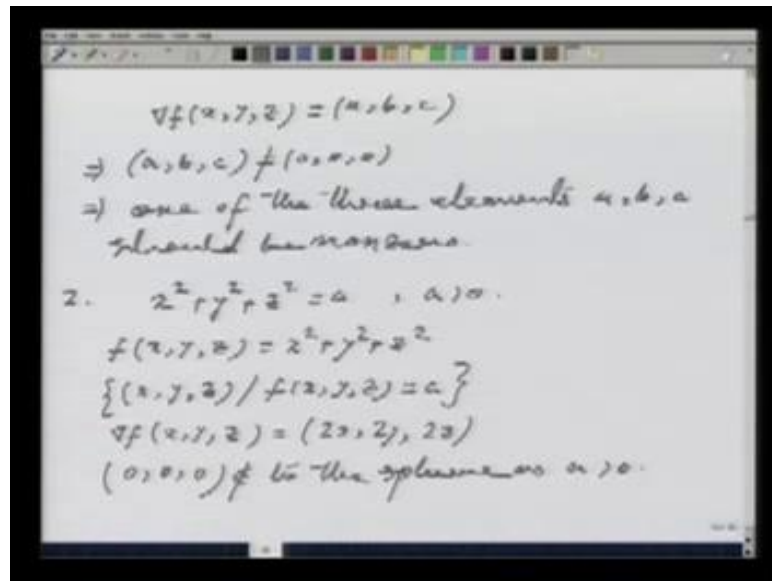 ∇f(x,y,z) = (a,b,c)
⇒ (a,b,c) ≠ (0,0,0)
⇒ one of the three elements a,b,c
should be nonzero.
2. x²+y²+z² = a , a>0.
f(x,y,z) = x²+y²+z²
{(x,y,z) / f(x,y,z) = a}
∇f(x,y,z) = (2x, 2y, 2z)
(0,0,0) ∉ to the sphere as a>0.